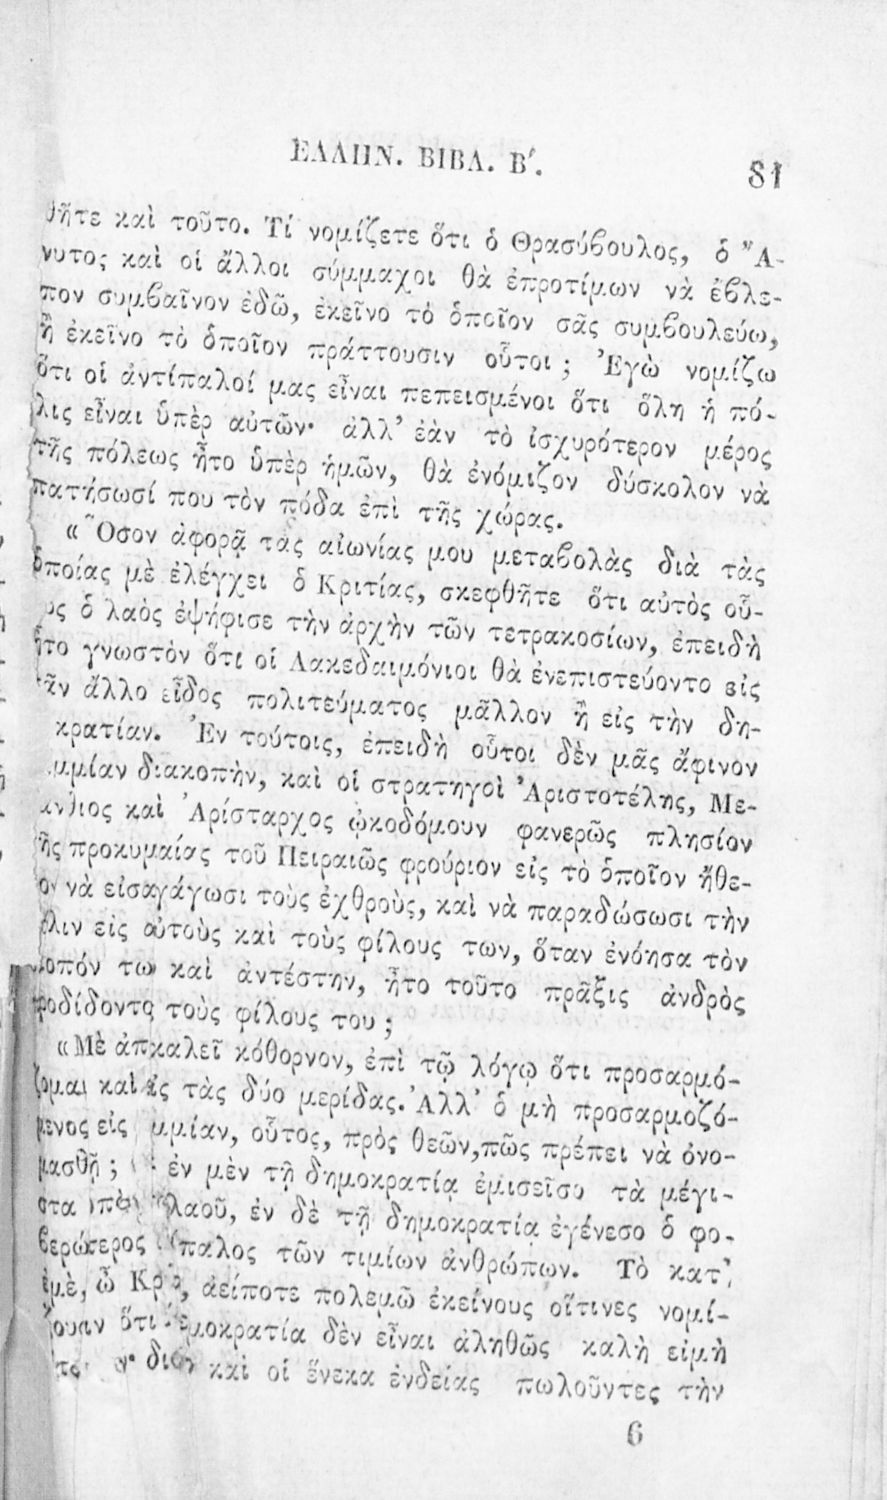 ΕΛΛΗΝ. ΒΙΒΛ. Β΄.
81
θῆτε καὶ τοῦτο. Τί νομίζετε ὅτι ὁ Θρασύβουλος, ὁ Ἄ-
νυτος καὶ οἱ ἄλλοι σύμμαχοι θὰ ἐπροτίμων νὰ ἔβλε-
πον συμβαῖνον ἐδῶ, ἐκεῖνο τὸ ὁποῖον σᾶς συμβουλεύω,
ἢ ἐκεῖνο τὸ ὁποῖον πράττουσιν οὗτοι ; Ἐγὼ νομίζω
ὅτι οἱ ἀντίπαλοί μας εἶναι πεπεισμένοι ὅτι ὅλη ἡ πό-
λις εἶναι ὑπὲρ αὐτῶν· ἀλλ’ ἐὰν τὸ ἰσχυρότερον μέρος
τῆς πόλεως ἦτο ὑπὲρ ἡμῶν, θὰ ἐνόμιζον δύσκολον νὰ
πατήσωσί που τὸν πόδα ἐπὶ τῆς χώρας.
« Ὅσον ἀφορᾷ τὰς αἰωνίας μου μεταβολὰς διὰ τὰς
ὁποίας μὲ ἐλέγχει ὁ Κριτίας, σκεφθῆτε ὅτι αὐτὸς οὗ-
ος ὁ λαὸς ἐψήφισε τὴν ἀρχὴν τῶν τετρακοσίων, ἐπειδὴ
ἦτο γνωστὸν ὅτι οἱ Λακεδαιμόνιοι θὰ ἐνεπιστεύοντο εἰς
πᾶν ἄλλο εἶδος πολιτεύματος μᾶλλον ἢ εἰς τὴν δη-
κρατίαν. Ἐν τούτοις, ἐπειδὴ οὗτοι δὲν μᾶς ἄφινον
μμίαν διακοπὴν, καὶ οἱ στρατηγοὶ Ἀριστοτέλης, Με-
άνθιος καὶ Ἀρίσταρχος ᾠκοδόμουν φανερῶς πλησίον
ῆς προκυμαίας τοῦ Πειραιῶς φρούριον εἰς τὸ ὁποῖον ἤθε-
ον νὰ εἰσαγάγωσι τοὺς ἐχθροὺς, καὶ νὰ παραδώσωσι τὴν
όλιν εἰς αὐτοὺς καὶ τοὺς φίλους των, ὅταν ἐνόησα τὸν
κοπόν των καὶ ἀντέστην, ἦτο τοῦτο πρᾶξις ἀνδρὸς
προδίδοντος τοὺς φίλους του ;
«Μὲ ἀποκαλεῖ κόθορνον, ἐπὶ τῷ λόγῳ ὅτι προσαρμό-
ζομαι καὶ εἰς τὰς δύο μερίδας. Ἀλλ’ ὁ μὴ προσαρμοζό-
μενος εἰς μμίαν, οὗτος, πρὸς θεῶν, πῶς πρέπει νὰ ὀνο-
μασθῇ ; ἐν μὲν τῇ δημοκρατίᾳ ἐμισεῖσο τὰ μέγι-
στα ὑπὸ λαοῦ, ἐν δὲ τῇ δημοκρατίᾳ ἐγένεσο ὁ φο-
βερώτερος παλος τῶν τιμίων ἀνθρώπων. Τὸ κατ’
ἐμὲ, ὦ Κρ, ἀείποτε πολεμῶ ἐκείνους οἵτινες νομί-
ζουσιν ὅτι μοκρατία δὲν εἶναι ἀληθῶς καλὴ εἰμὴ
καὶ οἱ ἕνεκα ἐνδείας πωλοῦντες τὴν
6